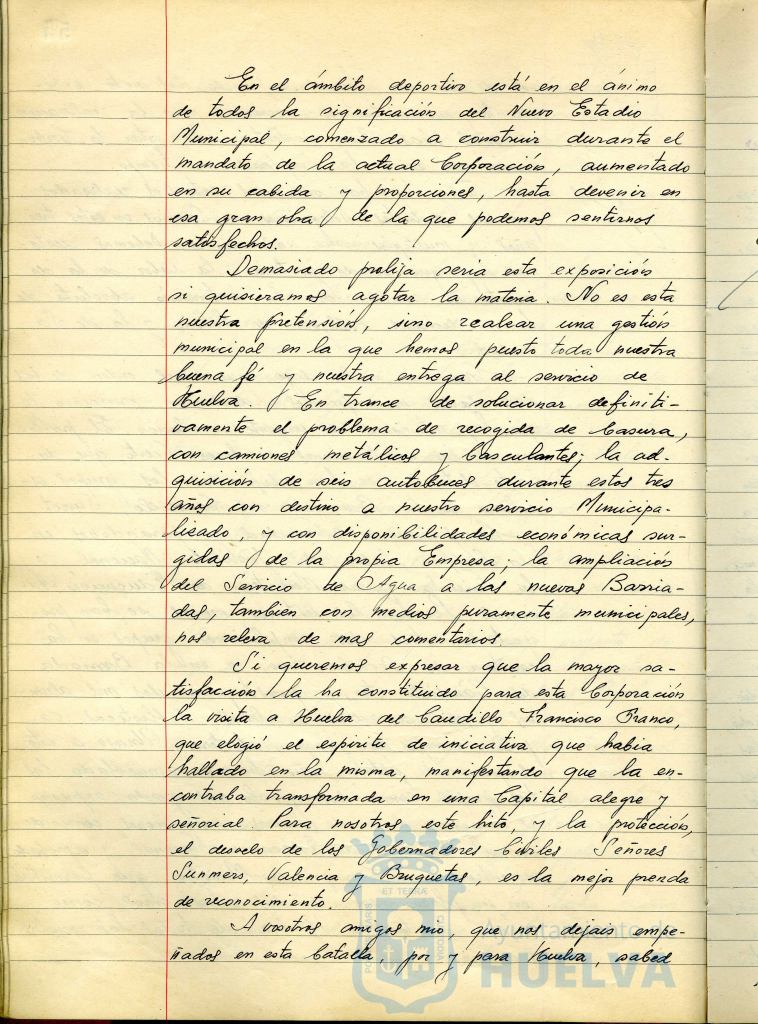 En el ámbito deportivo está en el ánimo
de todos la significación del Nuevo Estadio
Municipal, comenzado a construir durante el
mandato de la actual Corporación, aumentado
en su cabida y proporciones, hasta devenir en
esa gran obra de la que podemos sentirnos
satisfechos.
Demasiado prolija seria esta exposición
si quisieramos agotar la materia. No es esta
nuestra pretensión, sino realzar una gestión
municipal en la que hemos puesto toda nuestra
buena fé y nuestra entrega al servicio de
Huelva. En trance de solucionar definiti-
vamente el problema de recogida de basura,
con camiones metálicos y basculantes; la ad-
quisición de seis autobuses durante estos tres
años con destino a nuestro servicio Municipa-
lizado, y con disponibilidades económicas sur-
gidas de la propia Empresa; la ampliación
del Servicio de Agua a las nuevas Barria-
das, tambien con medios puramente municipales,
nos releva de mas comentarios.
Si queremos expresar que la mayor sa-
tisfacción la ha constituido para esta Corporación
la visita a Huelva del Caudillo Francisco Franco,
que elogió el espiritu de iniciativa que habia
hallado en la misma, manifestando que la en-
contraba transformada en una Capital alegre y
señorial. Para nosotros este hito, y la protección,
el desvelo de los Gobernadores Civiles Señores
Summers, Valencia y Bruguetas, es la mejor prenda
de reconocimiento.
A vosotros amigos mio, que nos dejais empe-
ñados en esta batalla, por y para Huelva, sabed
Ayuntamiento de
HUELVA